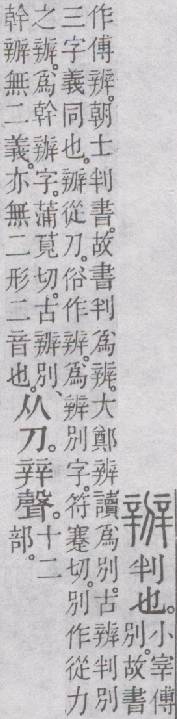 辨判也。小宰傅
別。故書
作傅辨。朝士判書。故書判爲辨。大鄭辨讀爲別。古辨判別
三字義同也。辧從刀。俗作辨。爲辨別字。符蹇切。別作從力
之辦。爲幹辦字。蒲莧切。古辧別
幹辧無二義。亦無二形二音也。
从刀。辡聲。十二
部。